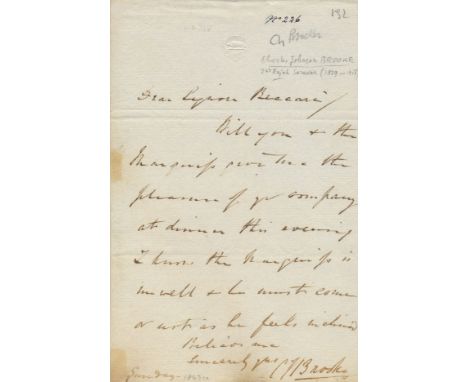 No 226
132
Ch Brooke
Charles Johnson BROOKE
2nd Rajah Sarawak (1829-1917
Dear Signor Beccari
Will you & the
Marquiss give me the
pleasure of yr company
at dinner this evening
I know the Marquiss is
unwell & he must come
or not as he feels inclined
Believe me
Sincerely yrs
CJBrooke
Sunday